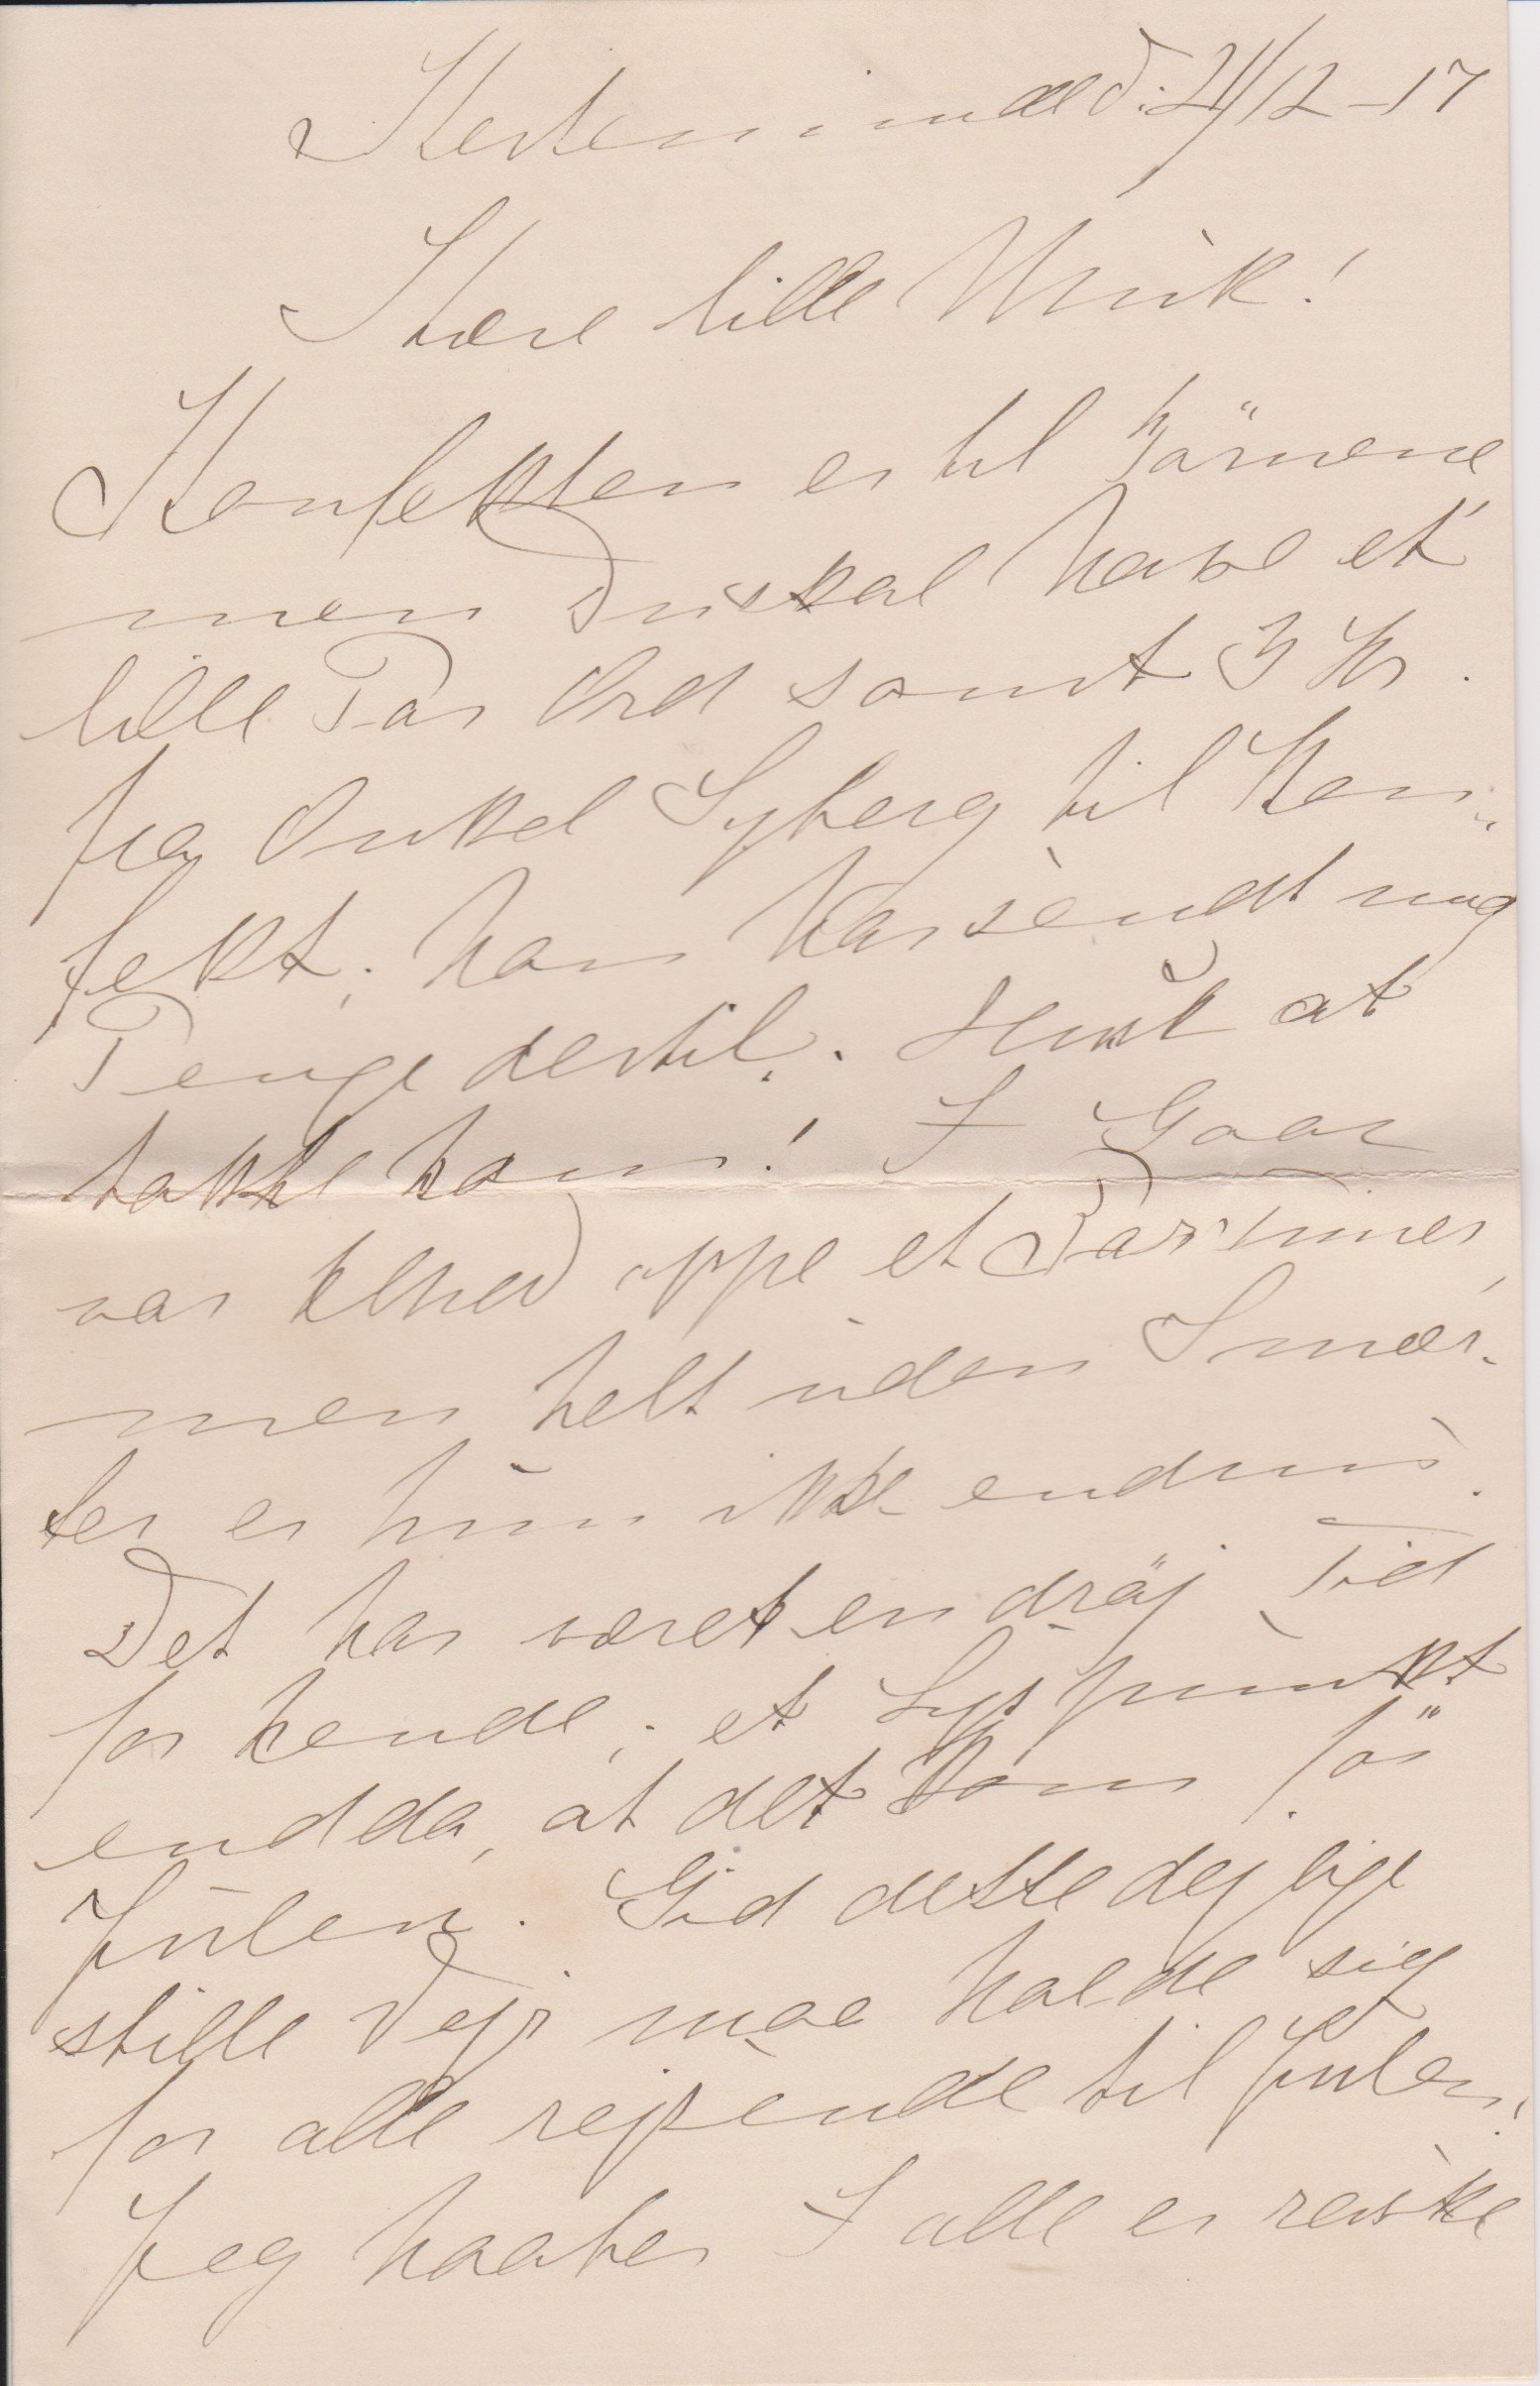 Kerteminde d: 21/12-17
Kære lille Muk!
Konfekten er til Börnene
men Du skal have et
lille Par Ord samt 3 Kr.
fra Onkel Syberg til Kon-
fekt; han har sendt mig
Penge dertil. Husk at
takke ham! I Gaar
var Elna oppe et Par Timer,
men helt uden Smer-
ter er hun ikke endnu.
Det har været en dröj Tid
for hende; et Lyspunkt
endda, at det kom för
Julen. Gid dette dejlige
stille Vejr maa holde sig
for alle rejsende til Julen!
Jeg haaber I alle er raske